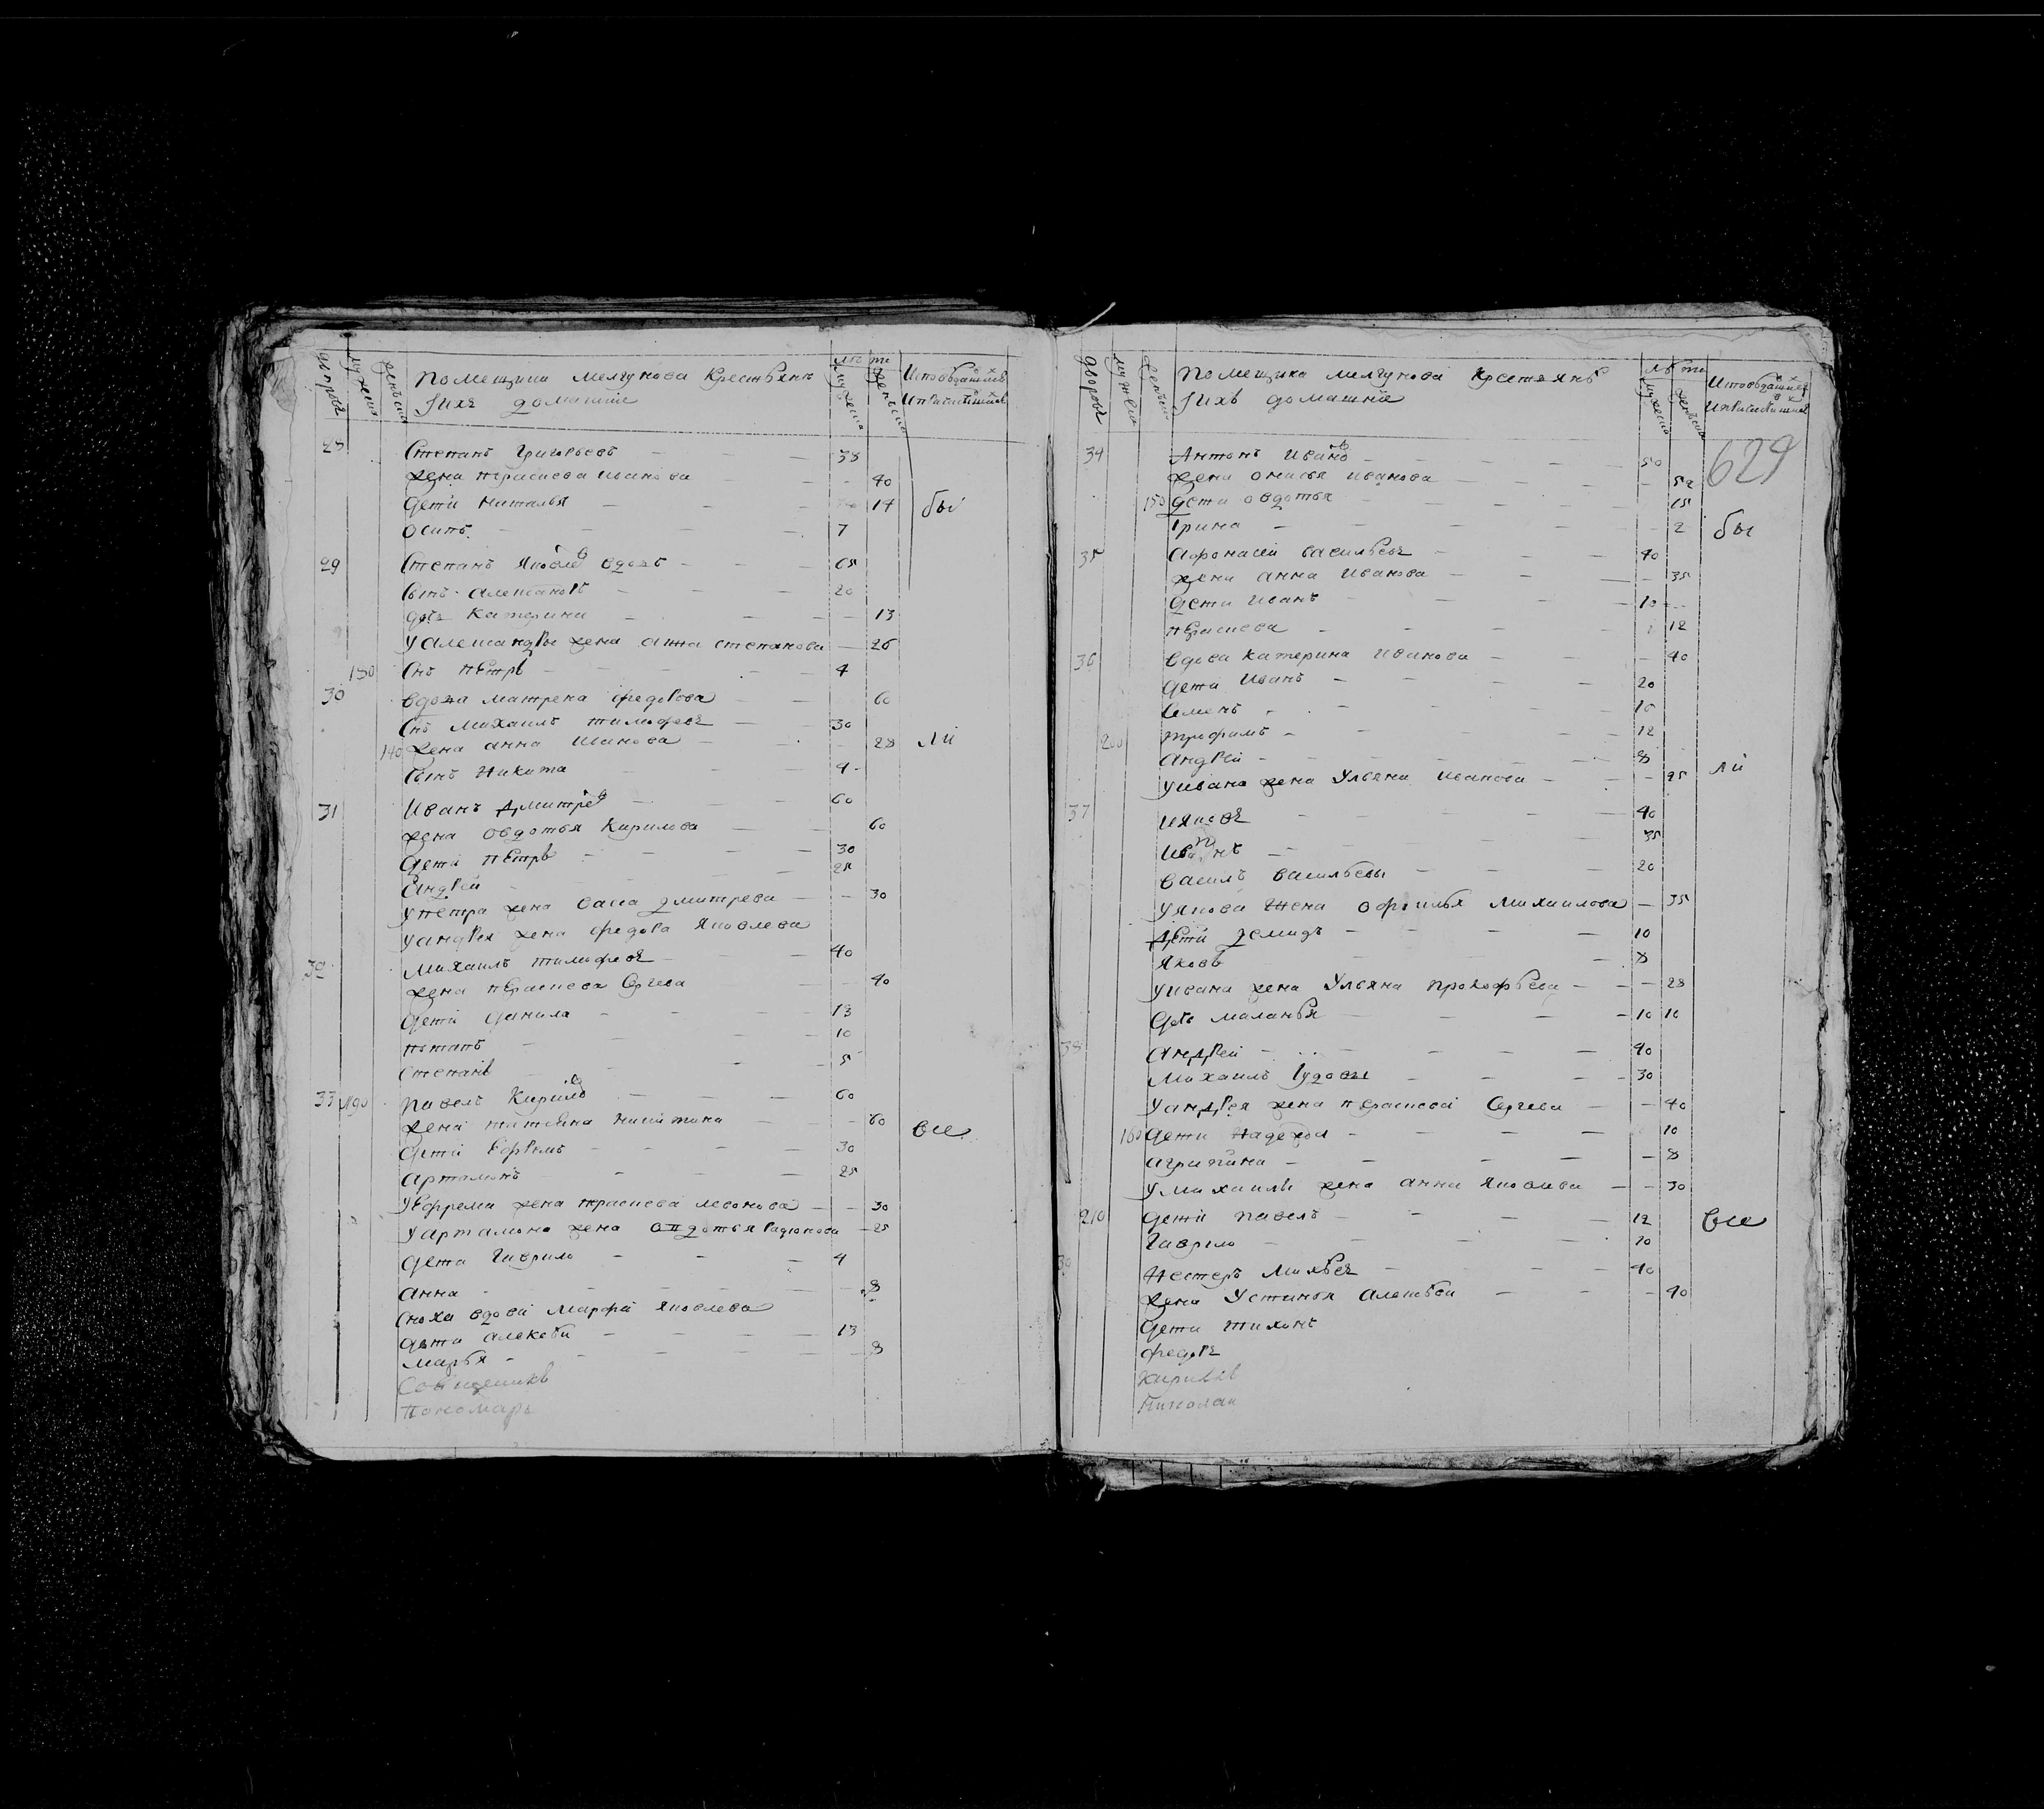 дворовъ мужеска женска Помещика Мелгунова Крестьянъ лѣта мужеска женска Исповѣдашихъ
Iихъ домашнiе
28 Степанъ Григорьевъ 38
жена праскева иванова 40
дети наталья 14 бы
осипъ 7
29 Степанъ Яковлевъ вдовъ 65
сынъ Александръ 20
дочь катерина 13
У александры жена анна степанова 26
130 снъ петръ 4
30 вдова матрена федорова 60
снъ михаилъ тимофеевъ 30
140 жена анна иванова 28 ли
сынъ никита 4
31 Иванъ дмитревъ 60
жена овдотья кирилова 60
дети петръ 30
андрей 25
у петра жена васса дмитрева 30
у андрея жена федора яковлева
32 михаилъ тимофеевъ 40
жена параскева Сргева 40
дети данила 13
потапъ 10
степанъ 5
33 павелъ кириловъ 60
жена татьяна никитина 60 все
дети Ефремъ 30
артамонъ 25
У Ефрема жена праскева левонова 30
у артамона жена овдотья радионова 25
дети гаврило 4
анна 8
сноха вдова марфа яковлева
дети алексеи 13
марья 8
Священникъ
Пономарь
дворовъ мужеска женска Помещика мелгунова Крестьянъ лѣта мужеска женска Исповѣдашихъ
Iихъ домашнiе
629
34 Антонъ Ивановъ 50
жена онисья иванова 50
150 дети овдотья 15
Iрина 2 бы
35 Афонасей васильевъ 40
жена анна Иванова 35
дети иванъ 10
параскева 12
36 вдова катерина иванова 40
дети иванъ 20
семенъ 16
200 трофимъ 12
андрей 8 ли
у ивана жена Ульяна иванова 25
37 Iяковъ 40
Иванъ 35
василъ васильевы 20
у якова жена офимья Михаилова 35
дети демидъ 10
яковъ 8
у ивана жена Ульяна прокофьева 28
дочь маланья 10 10
38 андрей 40
михаилъ 30
у андрея жена параскева Сргева 40
160 дети надежда 10
агрипина 8
у михаилы жена анна яковлева 30
210 дети павелъ 12 все
гаврило 10
нестеръ 40
жена Устинья алексева 40
дети тихонъ
федоръ
кирилъ
николаи